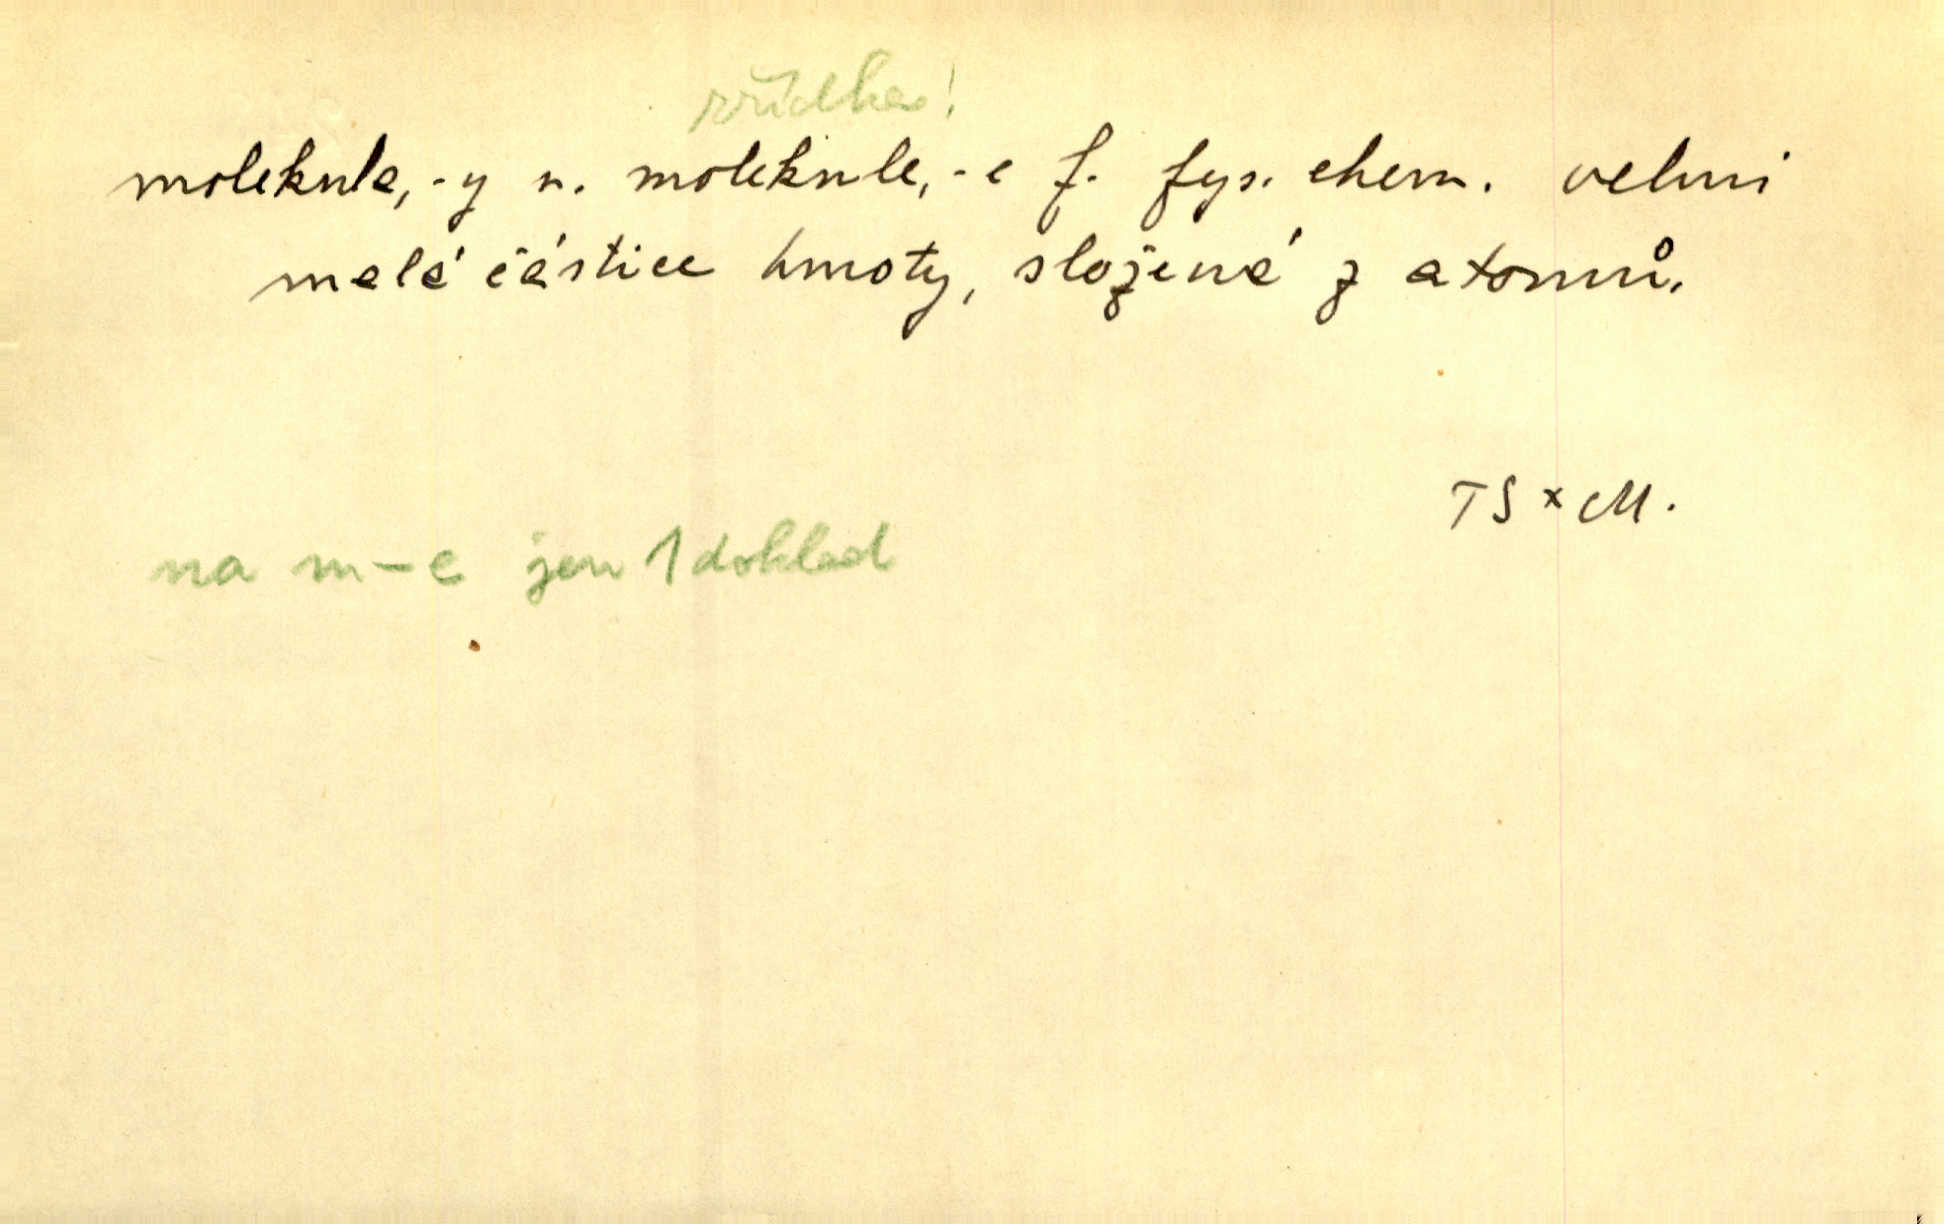 zřídka!
molekula, -y n. molekule, -e f. fys. chem. velmi
malá částice hmoty, složená z atomů.
TS × M.
na m–e jen 1 doklad